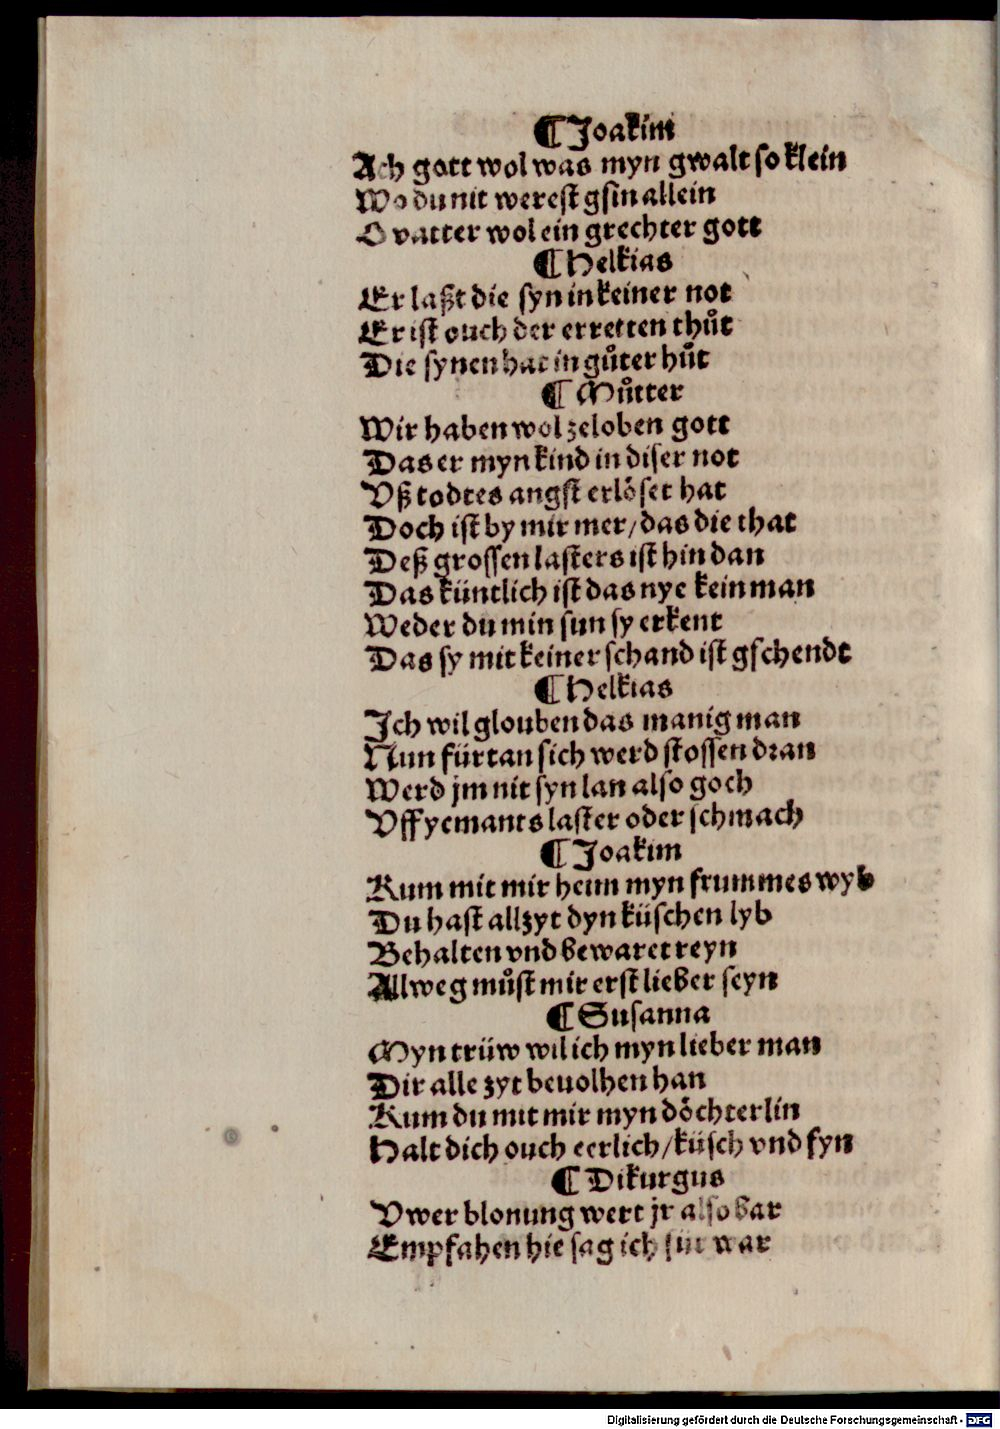 ¶ Joakim
Ach gott wol was myn gwalt so klein
Wo du nit werest gsin allein
O vatter wol ein grechter gott
¶ Helkias
Er laßt die syn in keiner not
Er ist ouch der erretten thůt
Die synen hat in gůter hůt
¶ Můtter
Wir haben wol zeloben gott
Das er myn kind in diser not
Vß todtes angst erlöset hat
Doch ist by mir mer/das die that
Deß grossen lasters ist hin dan
Das küntlich ist das nye kein man
Weder du min sun sy erkent
Das sy mit keiner schand ist gschendt
¶ Helkias
Ich wil glouben das manig man
Nun fürtan sich werd stossen dran
Werd jm nit syn lan also goch
Vff yemants laster oder schmach
¶ Joakim
Kum mit mir heim myn frummes wyb
Du hast allzyt dyn küschen lyb
Behalten vnd bewaret reyn
Allweg můst mir erst lieber seyn
¶ Susanna
Myn trüw wil ich myn lieber man
Dir alle zyt beuolhen han
Kum du mit mir myn döchterlin
Halt dich ouch eerlich/küsch vnd fyn
¶ Dikurgus
Vwer blonung wert jr also bar
Empfahen hie sag ich für war
Digitalisierung gefördert durch die Deutsche Forschungsgemeinschaft - DFG